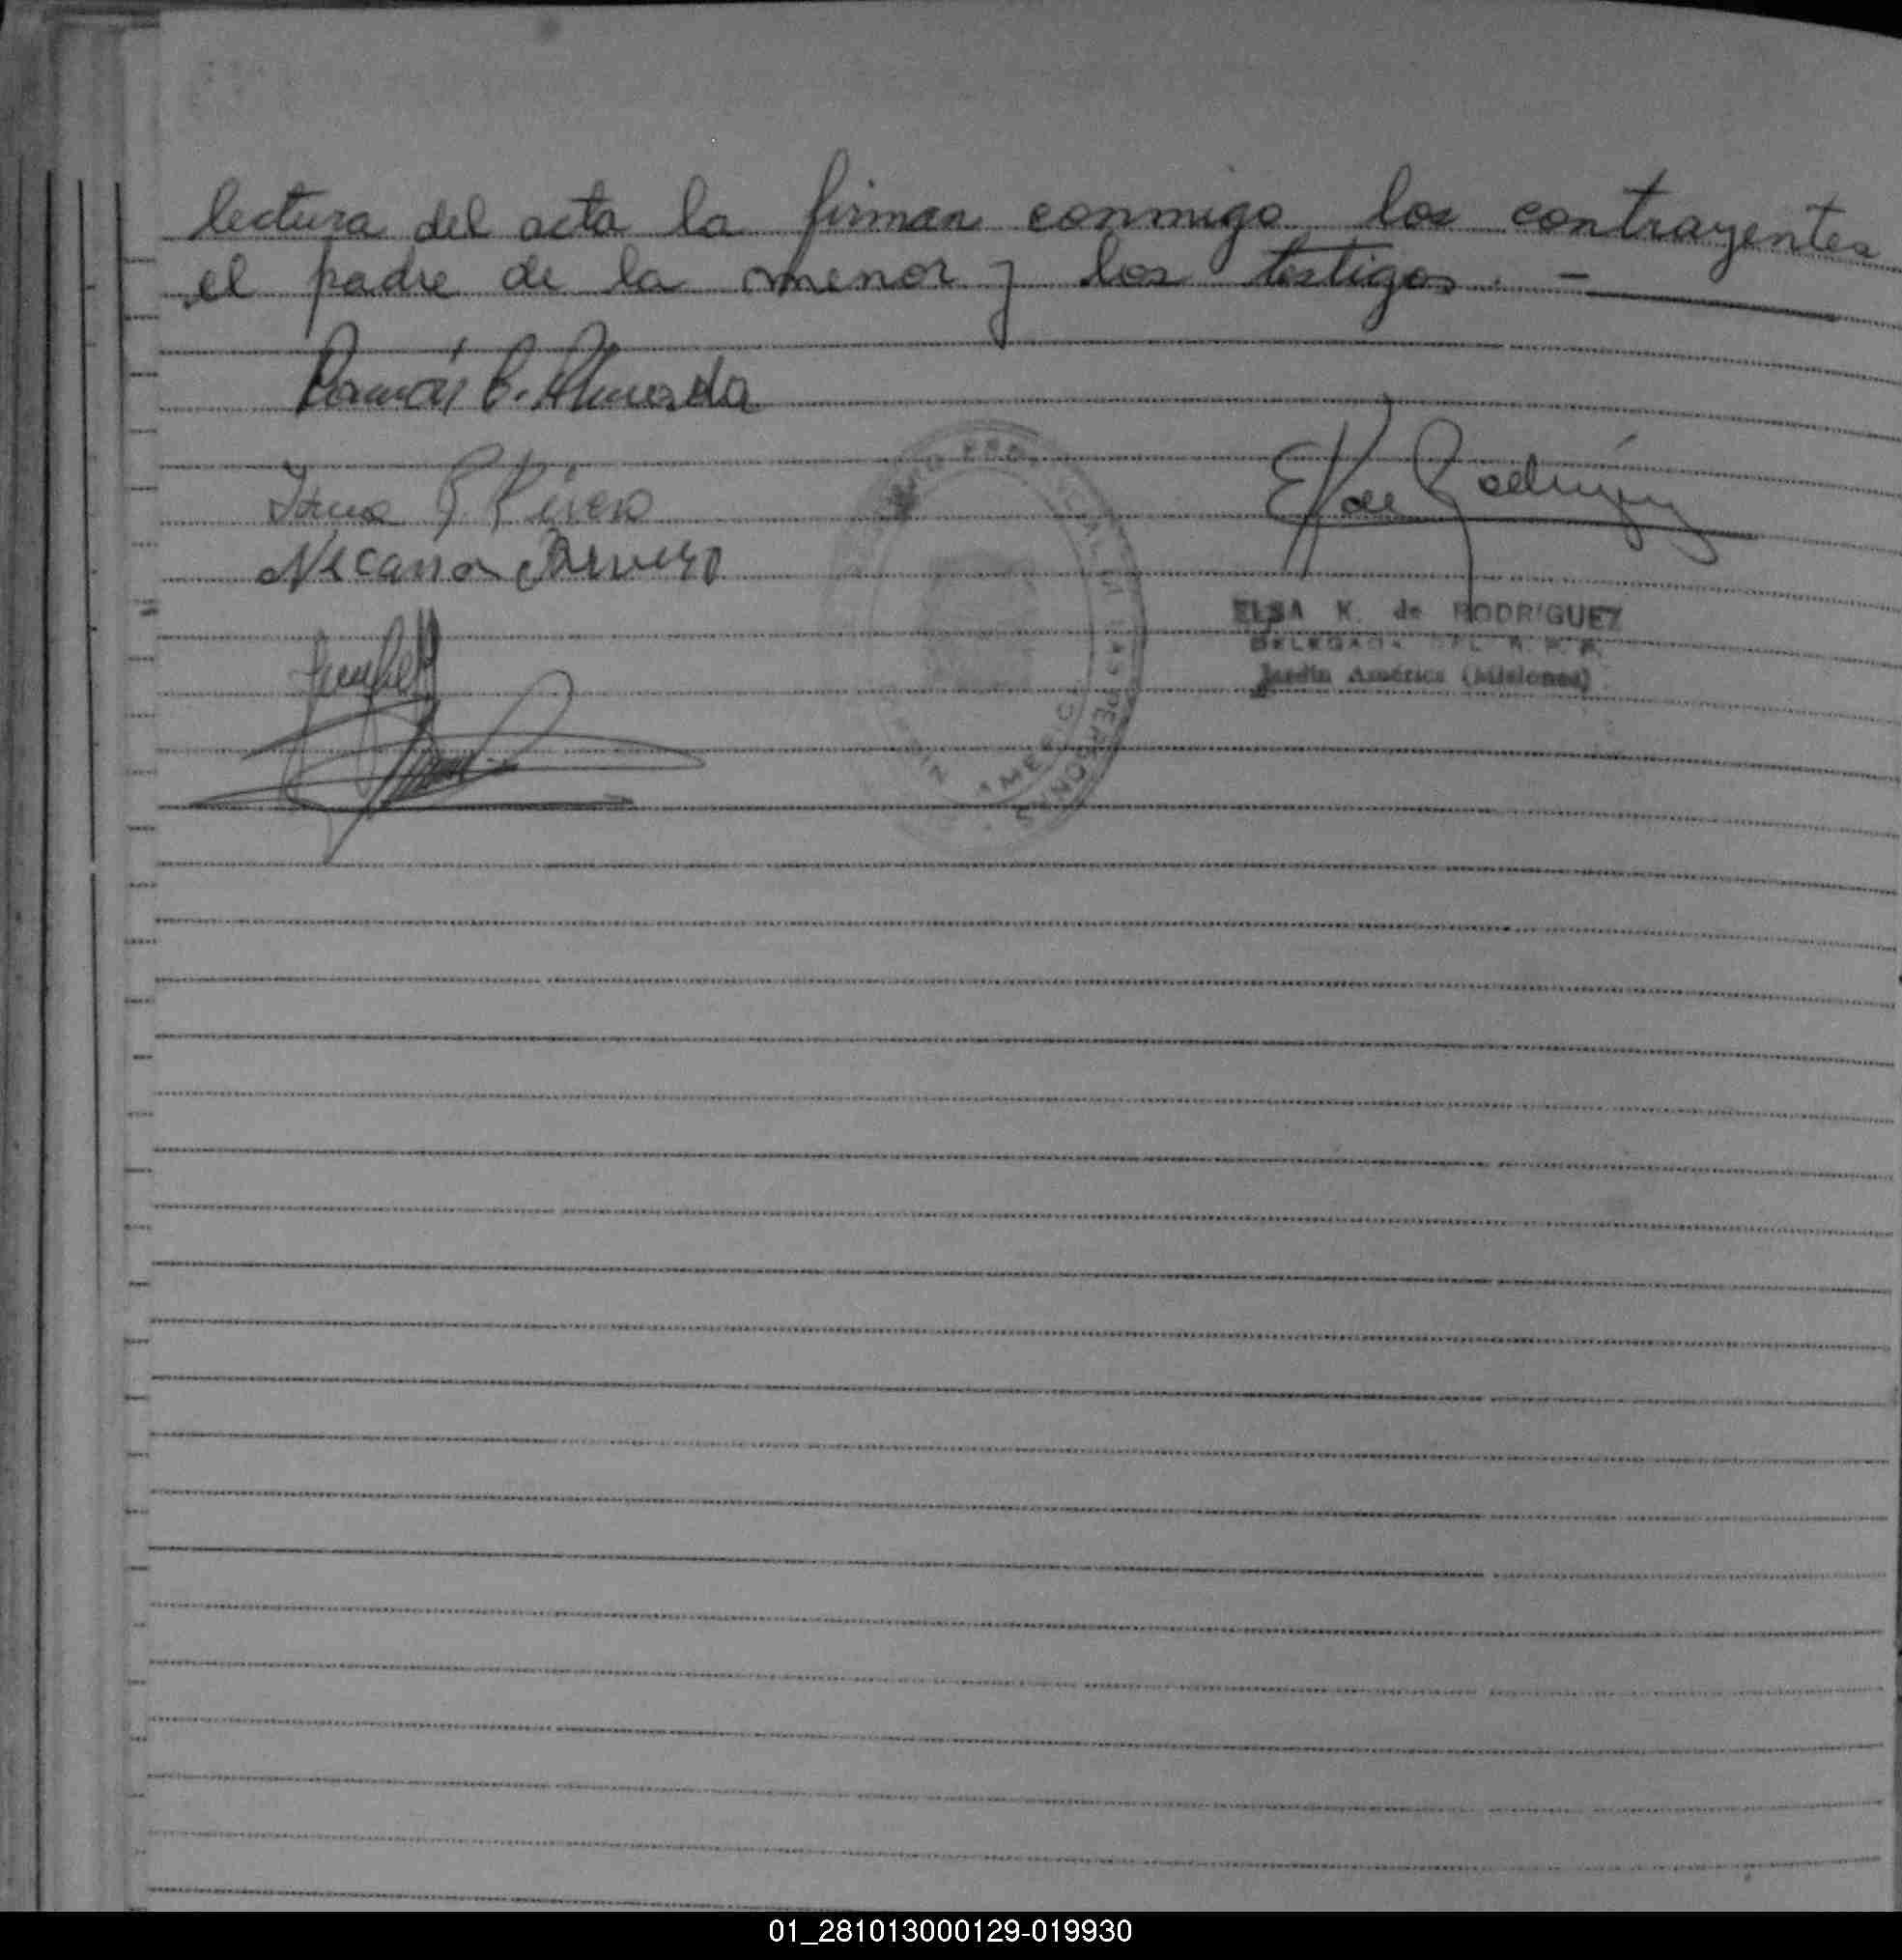 lectura del acta la firman conmigo los contrayentes
el padre de la menor y los testigos. —
Ramón C. Almada
Irma Rivero
E K de Rodríguez
ELSA K. de RODRIGUEZ
DELEGADA DEL R. P. P.
Jardín América (Misiones)
LAS PERSONAS
AMERIC
01_281013000129-019930